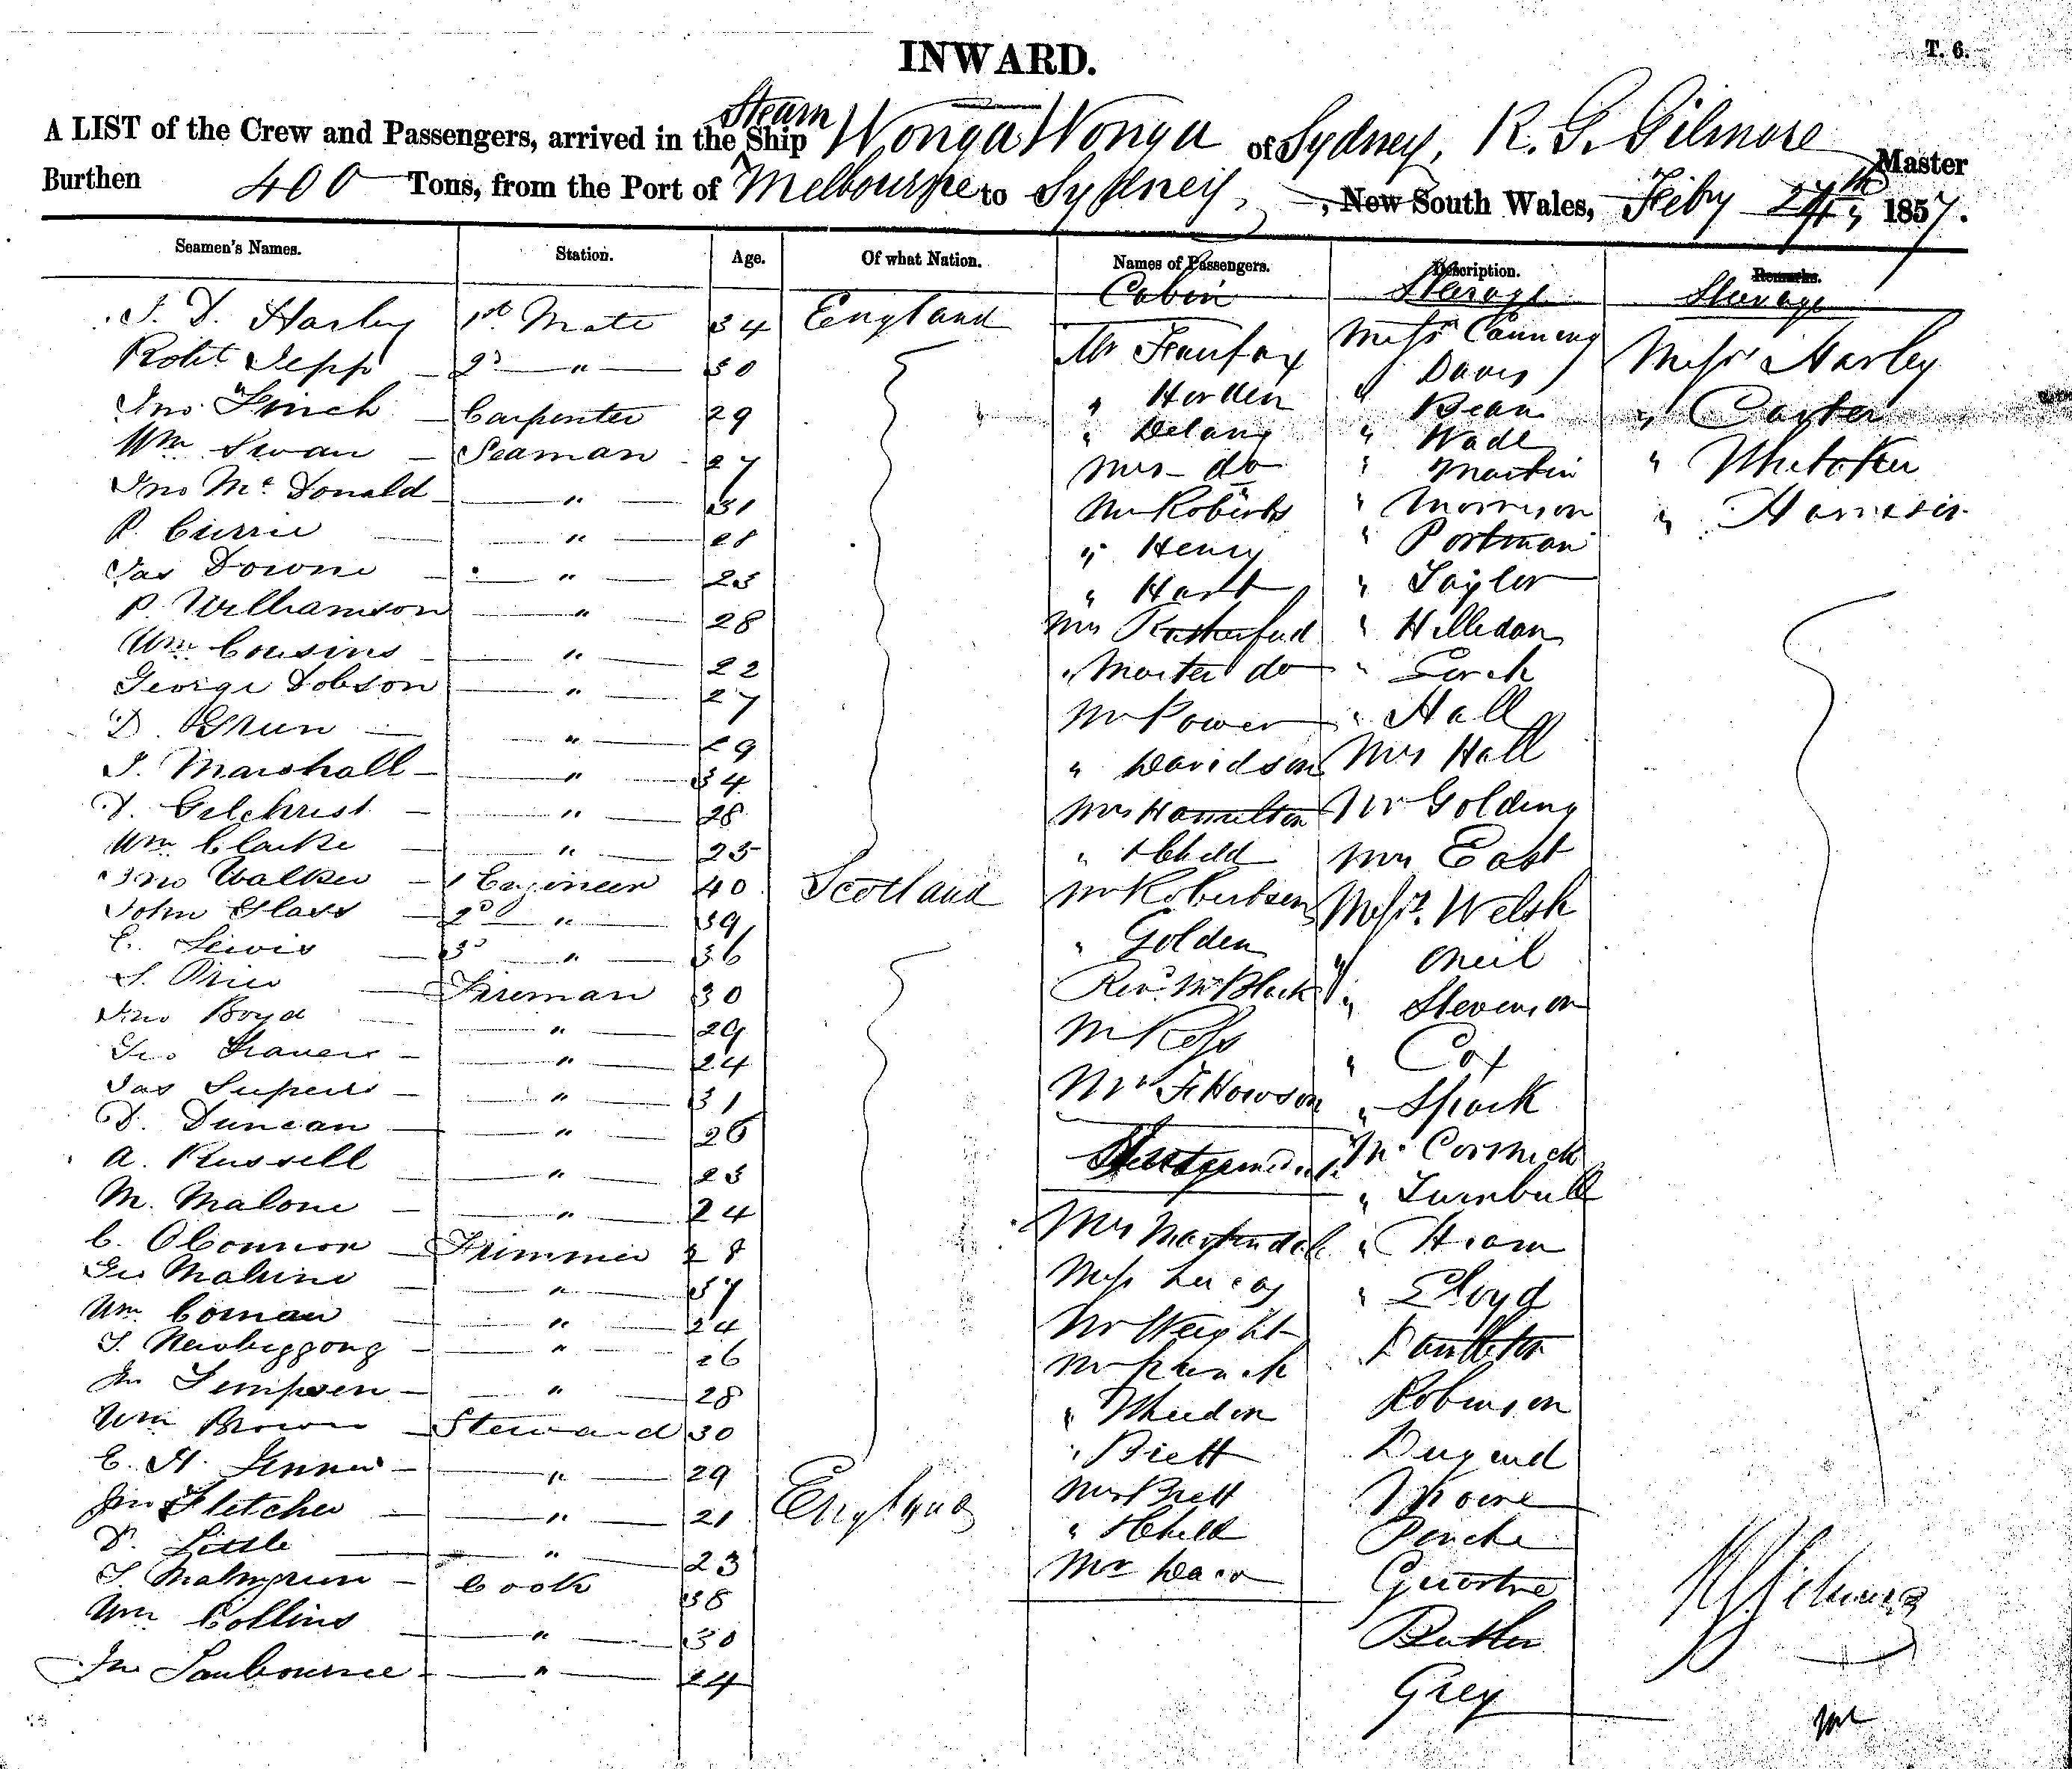 INWARD.
T. 6.
Steam
A LIST of the Crew and Passengers, arrived in the Ship Wonga Wonga of Sydney, R. G. Gilmore Master
Burthen 400 Tons, from the Port of Melbourne to Sydney, New South Wales, Feby 27th 1857.
Seamen's Names. Station. Age. Of what Nation. Names of Passengers. Description. Remarks.
Cabin Steerage Steerage
J. D. Harley 1st Mate 34 England
Robt Jepp 2d " 30
Jno. Finch Carpenter 29
Wm Swan Seaman 27
Jno McDonald " 31
P. Currie " 28
Jas Downe " 23
P. Williamson " 28
Wm Cousins " 22
George Dobson " 27
D. " 29
J. Marshall " 34
D. Gilchrist " 28
Wm Clarke " 23
Jno Walker 1 Engineer 40 Scotland
John Glass 2d " 39
C. Lewis 3d " 36
S. Price Fireman 30
Jno Boyd " 29
Geo " 24
Jas " 31
D. Duncan " 26
A. Russell " 23
M. Malone " 24
C. OConnor Trimmer 28
Geo " 37
Wm " 24
" 26
Jn " 28
Wm Brown Steward 30
C. H. " 29
Jno Fletcher " 21 England
D. Little " 23
Cook 38
Wm Collins " 30
Jno " 24
Mr Fairfax
" Horden
" Delany
Mrs do
Mr Roberts
" Henry
" Hart
Mrs Rutherford
" Master do
Mr Power
" Davidson
Mrs Hamilton
" & Child
Mr Robertson
" Golden
Revd Mr Black
Mr Ross
Mr F Howson
Mrs Martindale
Miss Lucas
Mr Weight
Mr
" Wheedon
" Brett
Mrs Brett
" & Child
Mr
Messrs Canning
" Davis
" Bean
" Wade
" Martin
" Morrison
" Portman
" Taylor
" Hilledon
"
" Hall
Mrs Hall
Mr Golding
Mrs East
Messrs. Welsh
" Oneil
" Stevenson
" Cox
" Spark
McCormick
" Turnbull
" Hiram
" Lloyd
Robinson
Dugend
Moore
Butler
Grey
Messrs Harley
" Carter
" Whitaker
" Harrison